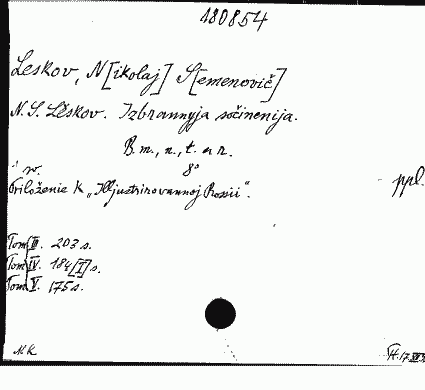 180854
Leskov, N[ikolaj] S[emenovič]
N.S. Lěskov. Izbrannyja sočinenija.
B.m., n., t. a r.
8°
ppl.
Priloženie k „Illjustrirovannoj Rossii".
Tom III. 203 s.
Tom IV. 184 [I] s.
Tom V. 175 s.
M.K